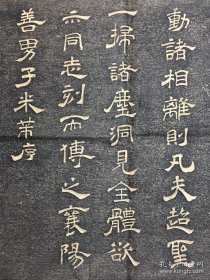 動諸相離則凡夫超聖
一掃諸塵洞見全體欲
示同志刻而傳之襄陽
善男子米芾序